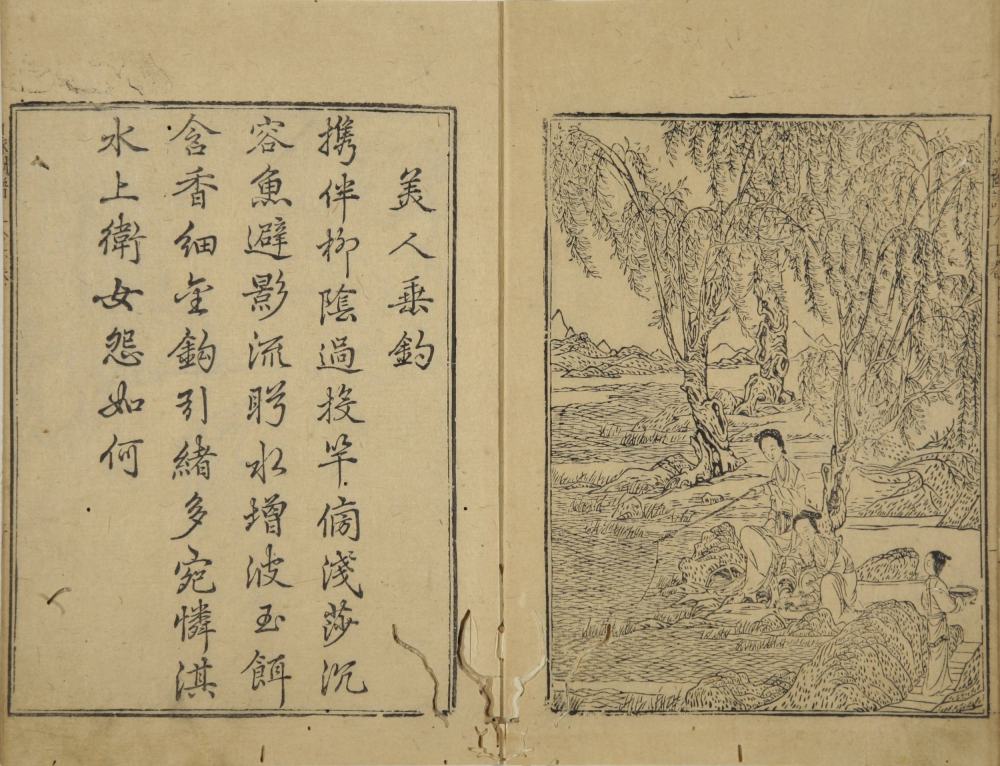 美人垂釣
携伴柳陰過投竿傍淺莎沉
容魚避影流盻水增波玉餌
含香細金鈎引緒多宛憐淇
水上衛女怨如何